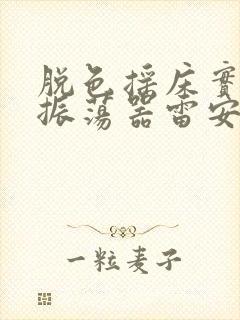 脱色摇床實
振荡器雷安
一粒麦子